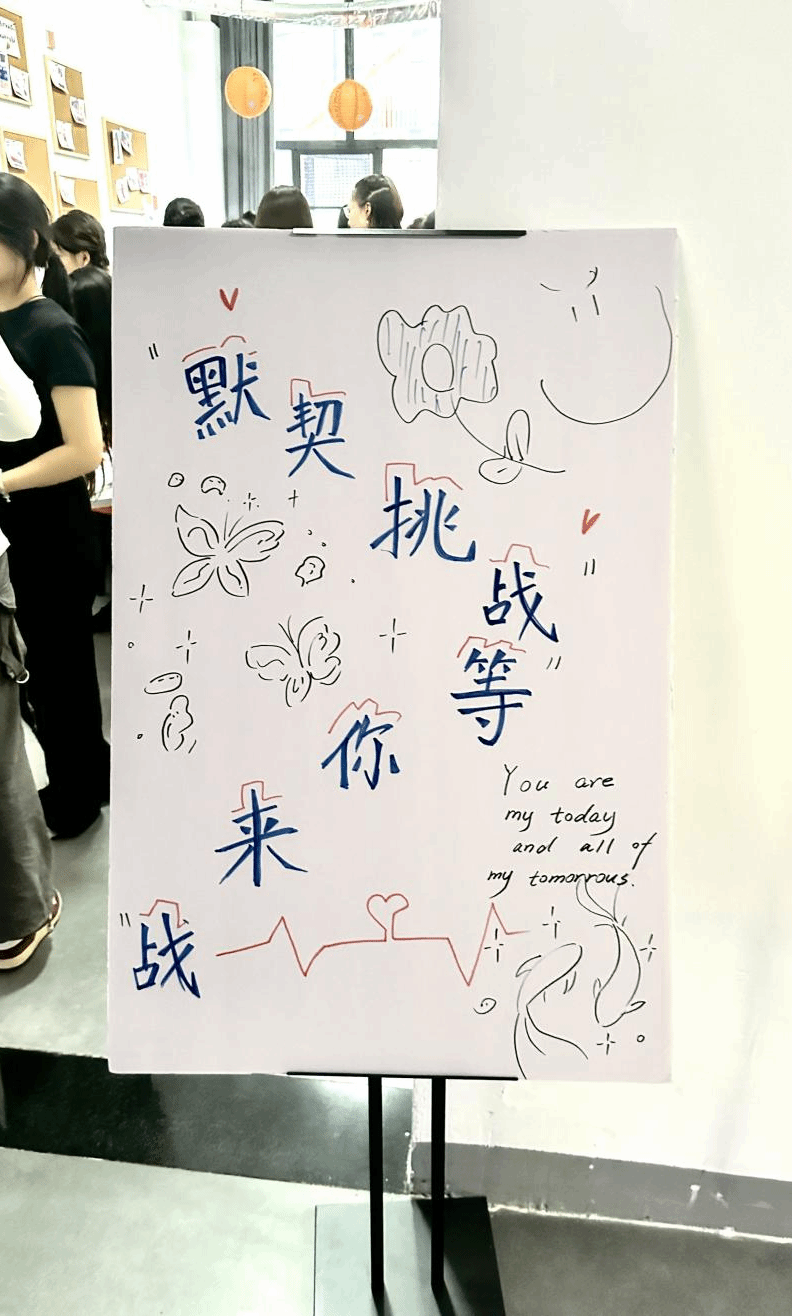 "默契挑战"
"等你来战"
You are
my today
and all of
my tomorrous.